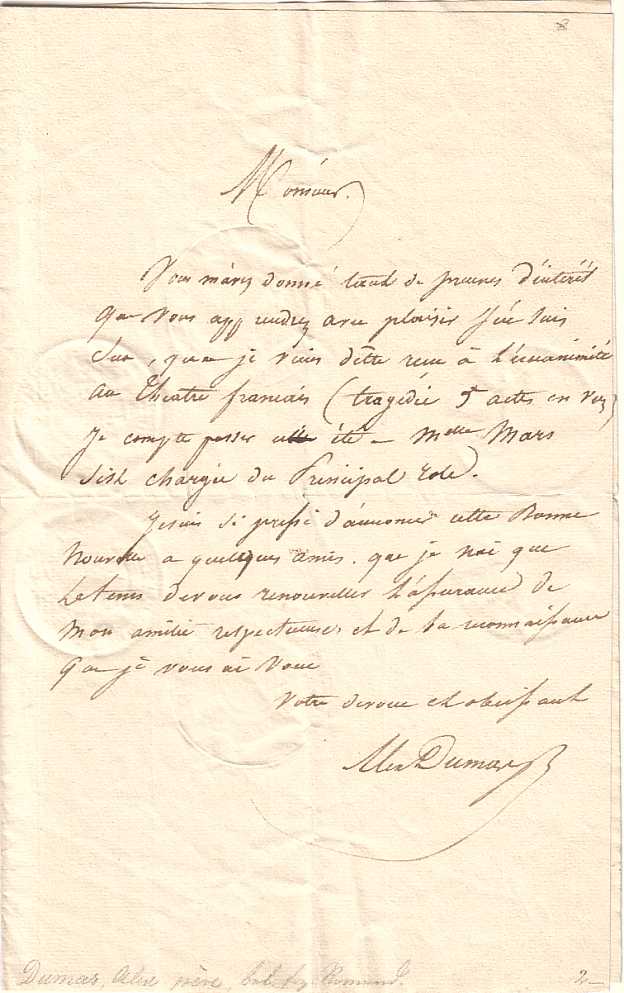 8
Monsieur.
Vous m'avez donné tant de preuves d'intérêt
que vous apprendrez avec plaisir j'en suis
sur, que je viens d'être recu à l'unanimité
au Théatre francais (tragédie 5 actes en vers)
Je compte passer cette été — Melle Mars
s'est chargée du Principal role.
Je suis si pressé d'annoncer cette Bonne
Nouvelle a quelques amis. que je n'ai que
Le tems de vous renouveller l'assurance de
Mon amitié respectueuse et de la reconnaissance
que je vous ai voué
Votre devoué et obeissant
Alex Dumas
Dumas, Alex père,
2—